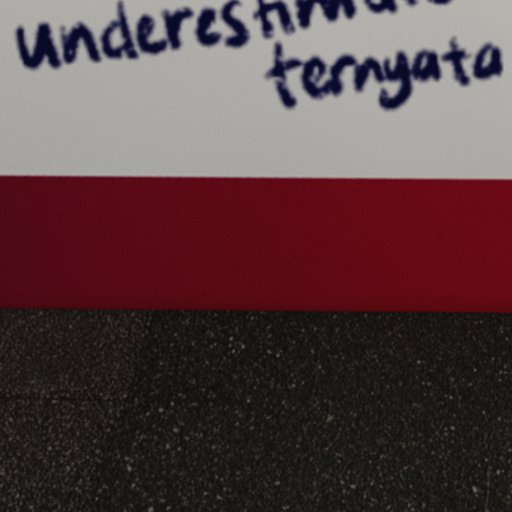 underestimate
ternyata